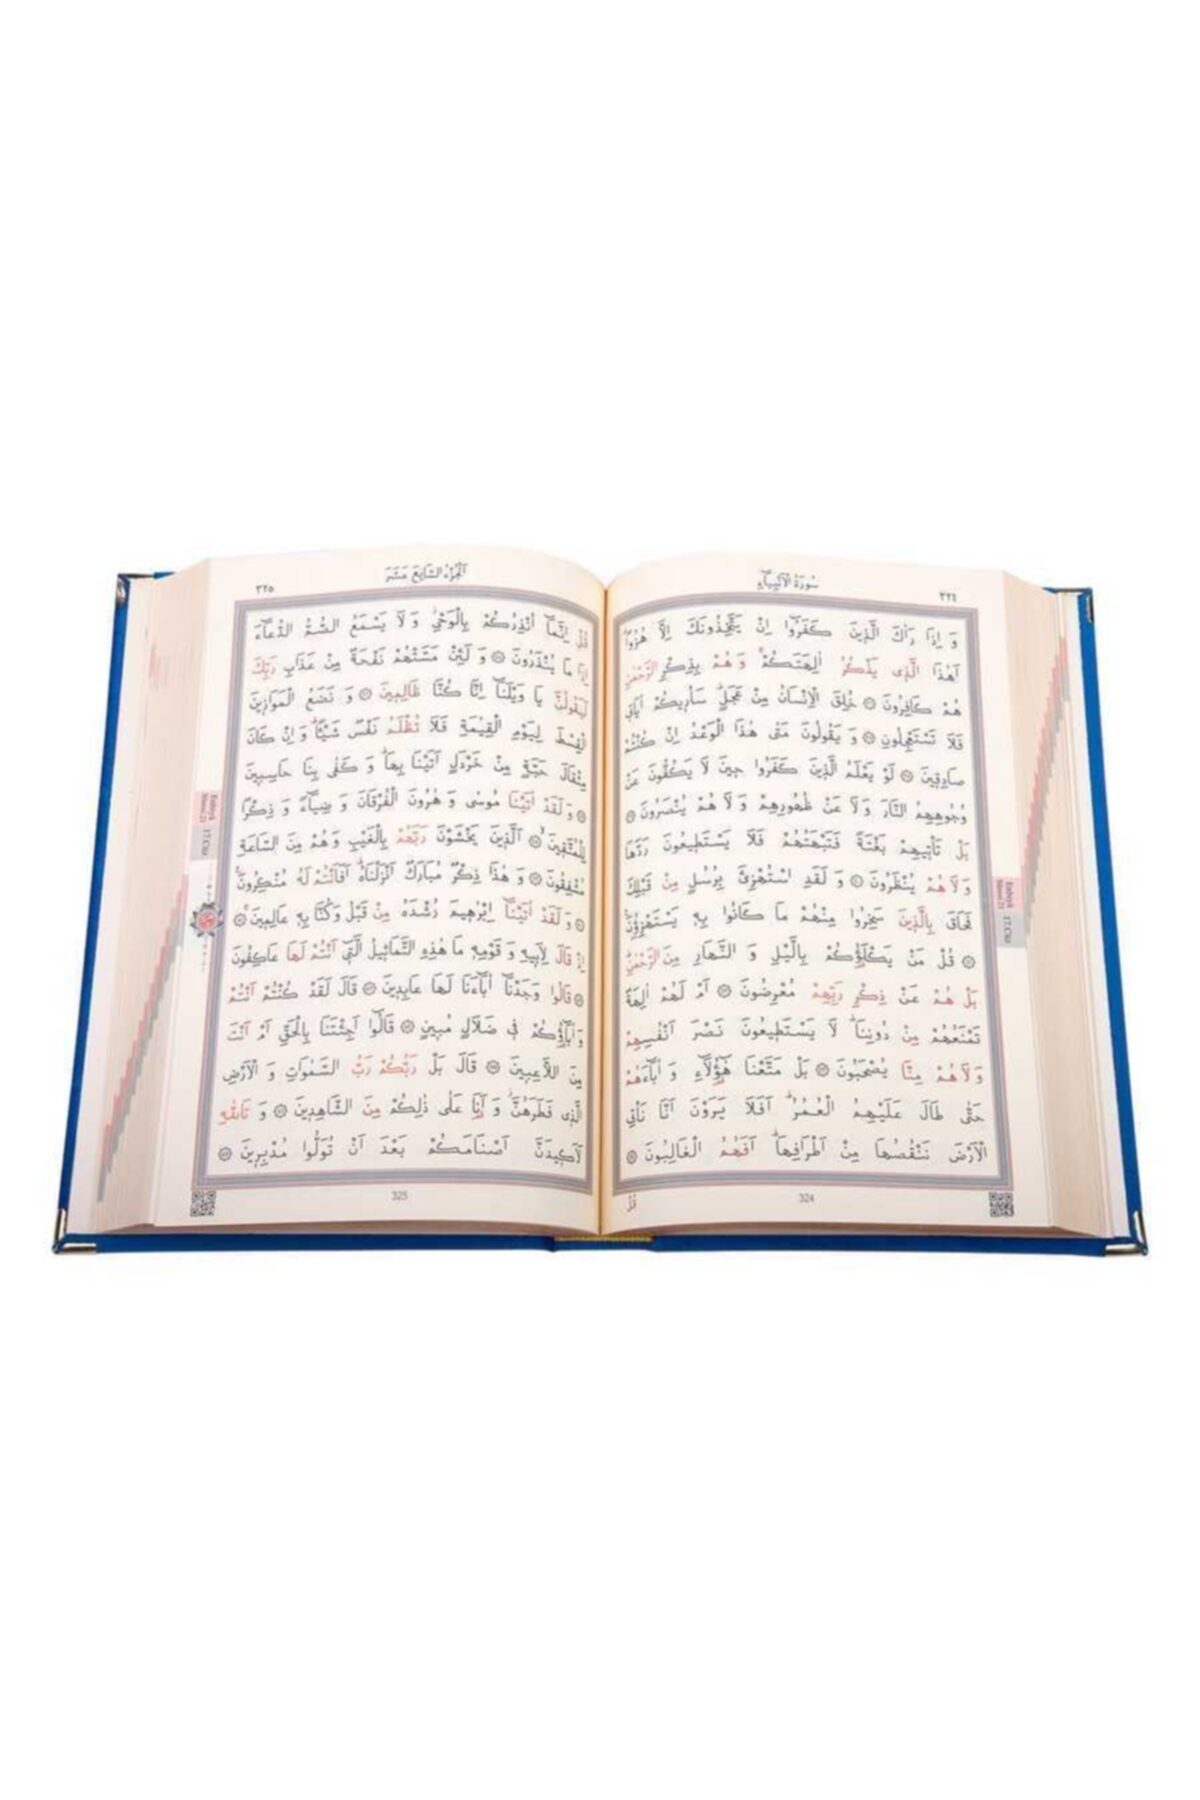 سُورَةُ الْاَنْبِيَاءِ
٣٢٤
وَ اِذَا رَاٰكَ الَّذ۪ينَ كَفَرُٓوا اِنْ يَتَّخِذُونَكَ اِلَّا هُزُوًاۜ
اَهٰذَا الَّذ۪ي يَذْكُرُ اٰلِهَتَكُمْۚ وَ هُمْ بِذِكْرِ الرَّحْمٰنِ
هُمْ كَافِرُونَ خُلِقَ الْاِنْسَانُ مِنْ عَجَلٍۜ سَاُر۪يكُمْ اٰيَات۪ي
فَلَا تَسْتَعْجِلُونِ وَ يَقُولُونَ مَتٰى هٰذَا الْوَعْدُ اِنْ كُنْتُمْ
صَادِق۪ينَ لَوْ يَعْلَمُ الَّذ۪ينَ كَفَرُوا ح۪ينَ لَا يَكُفُّونَ عَنْ
وُجُوهِهِمُ النَّارَ وَ لَا عَنْ ظُهُورِهِمْ وَ لَا هُمْ يُنْصَرُونَ
بَلْ تَأْت۪يهِمْ بَغْتَةً فَتَبْهَتُهُمْ فَلَا يَسْتَط۪يعُونَ رَدَّهَا
وَ لَا هُمْ يُنْظَرُونَ وَ لَقَدِ اسْتُهْزِئَ بِرُسُلٍ مِنْ قَبْلِكَ
فَحَاقَ بِالَّذ۪ينَ سَخِرُوا مِنْهُمْ مَا كَانُوا بِه۪ يَسْتَهْزِؤُ۫نَ
قُلْ مَنْ يَكْلَؤُ۬كُمْ بِالَّيْلِ وَ النَّهَارِ مِنَ الرَّحْمٰنِۜ
بَلْ هُمْ عَنْ ذِكْرِ رَبِّهِمْ مُعْرِضُونَ اَمْ لَهُمْ اٰلِهَةٌ
تَمْنَعُهُمْ مِنْ دُونِنَاۜ لَا يَسْتَط۪يعُونَ نَصْرَ اَنْفُسِهِمْ
وَ لَا هُمْ مِنَّا يُصْحَبُونَ بَلْ مَتَّعْنَا هٰٓؤُ۬لَٓاءِ وَ اٰبَٓاءَهُمْ
حَتّٰى طَالَ عَلَيْهِمُ الْعُمُرُۜ اَفَلَا يَرَوْنَ اَنَّا نَأْتِي
الْاَرْضَ نَنْقُصُهَا مِنْ اَطْرَافِهَاۜ اَفَهُمُ الْغَالِبُونَ
324
قُلْ
Enbiyâ
Sûresi:21
17.Cüz
اَلْجُزْءُ السَّابِعَ عَشَرَ
٣٢٥
قُلْ اِنَّمَٓا اُنْذِرُكُمْ بِالْوَحْيِۘ وَ لَا يَسْمَعُ الصُّمُّ الدُّعَٓاءَ
اِذَا مَا يُنْذَرُونَ وَ لَئِنْ مَسَّتْهُمْ نَفْحَةٌ مِنْ عَذَابِ رَبِّكَ
لَيَقُولُنَّ يَا وَيْلَنَٓا اِنَّا كُنَّا ظَالِم۪ينَ وَ نَضَعُ الْمَوَاز۪ينَ
الْقِسْطَ لِيَوْمِ الْقِيٰمَةِ فَلَا تُظْلَمُ نَفْسٌ شَيْـًٔاۜ وَ اِنْ كَانَ
مِثْقَالَ حَبَّةٍ مِنْ خَرْدَلٍ اَتَيْنَا بِهَاۜ وَ كَفٰى بِنَا حَاسِب۪ينَ
وَ لَقَدْ اٰتَيْنَا مُوسٰى وَ هٰرُونَ الْفُرْقَانَ وَ ضِيَٓاءً وَ ذِكْرًا
لِلْمُتَّق۪ينَۙ اَلَّذ۪ينَ يَخْشَوْنَ رَبَّهُمْ بِالْغَيْبِ وَ هُمْ مِنَ السَّاعَةِ
مُشْفِقُونَ وَ هٰذَا ذِكْرٌ مُبَارَكٌ اَنْزَلْنَاهُۜ اَفَاَنْتُمْ لَهُ مُنْكِرُونَ۟
وَ لَقَدْ اٰتَيْنَٓا اِبْرٰه۪يمَ رُشْدَهُ مِنْ قَبْلُ وَ كُنَّا بِه۪ عَالِم۪ينَۚ
اِذْ قَالَ لِاَب۪يهِ وَ قَوْمِه۪ مَا هٰذِهِ التَّمَاث۪يلُ الَّت۪ٓي اَنْتُمْ لَهَا عَاكِفُونَ
قَالُوا وَجَدْنَٓا اٰبَٓاءَنَا لَهَا عَابِد۪ينَ قَالَ لَقَدْ كُنْتُمْ اَنْتُمْ
وَ اٰبَٓاؤُ۬كُمْ ف۪ي ضَلَالٍ مُب۪ينٍ قَالُٓوا اَجِئْتَنَا بِالْحَقِّ اَمْ اَنْتَ
مِنَ اللَّاعِب۪ينَ قَالَ بَلْ رَبُّكُمْ رَبُّ السَّمٰوَاتِ وَ الْاَرْضِ
الَّذ۪ي فَطَرَهُنَّۘ وَ اَنَا۬ عَلٰى ذٰلِكُمْ مِنَ الشَّاهِد۪ينَ وَ تَاللّٰهِ
لَاَك۪يدَنَّ اَصْنَامَكُمْ بَعْدَ اَنْ تُوَلُّوا مُدْبِر۪ينَ
325
Enbiyâ
Sûresi:21
17.Cüz